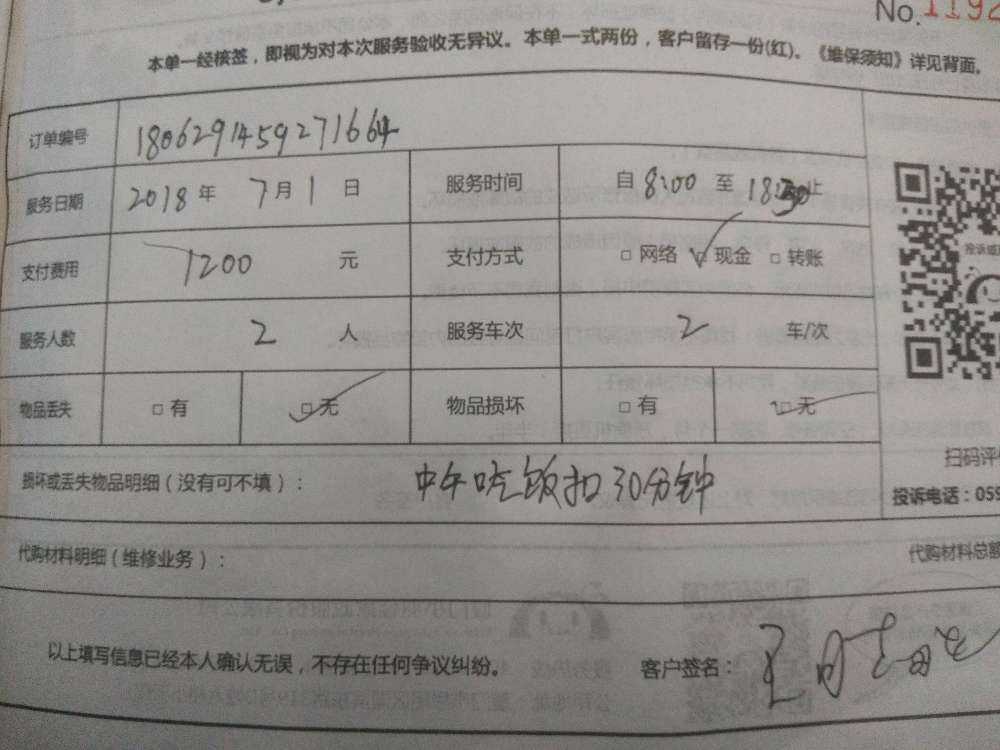 No.1192
本单一经核签，即视为对本次服务验收无异议。本单一式两份，客户留存一份(红)。《维保须知》详见背面。
订单编号 1806291459271664
服务日期 2018年 7月1日 服务时间 自8:00至18:30止
支付费用 1200 元 支付方式 □网络 □现金 □转账
服务人数 2 人 服务车次 2 车/次
物品丢失 □有 □无 物品损坏 □有 □无
扫码评
损坏或丢失物品明细（没有可不填）： 中午吃饭扣30分钟
投诉电话：059
代购材料明细（维修业务）： 代购材料总额
以上填写信息已经本人确认无误，不存在任何争议纠纷。 客户签名：